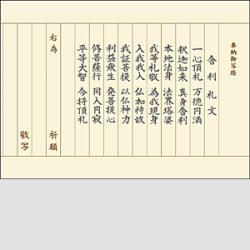 奉納御写経
舎利礼文
一心頂礼 万徳円満
釈迦如来 真身舎利
本地法身 法界塔婆
我等礼敬 為我現身
入我我入 仏加持故
我証菩提 以仏神力
利益衆生 発菩提心
修菩薩行 同入円寂
平等大智 今将頂礼
右為 祈願
敬写